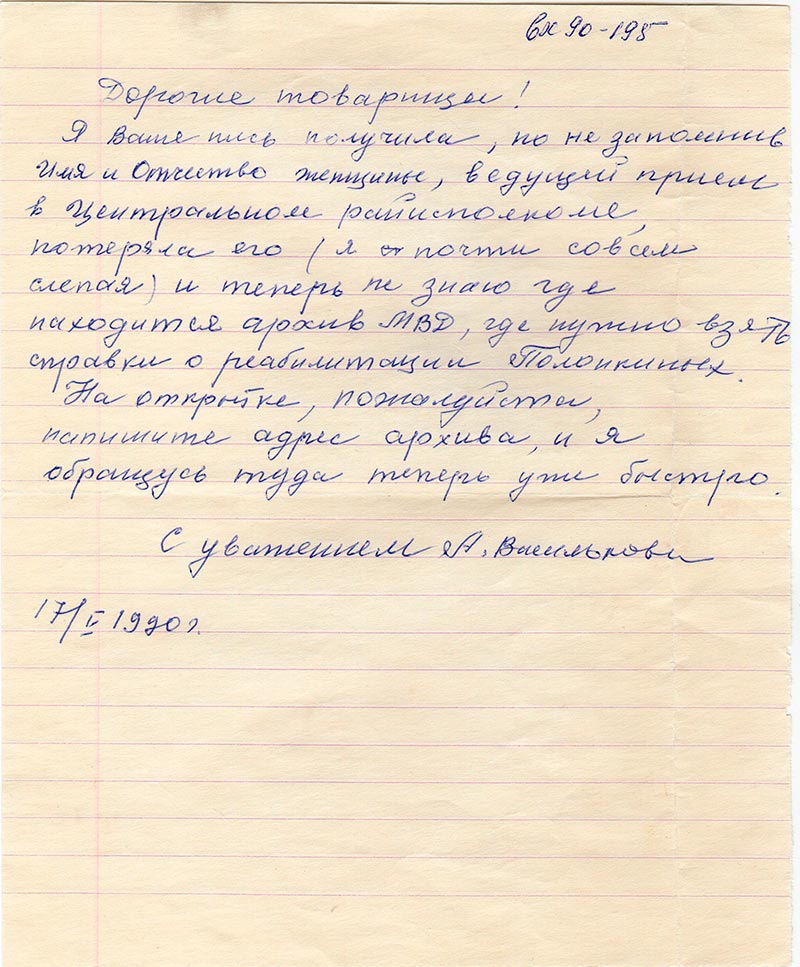 вх 90-195
Дорогие товарищи!
Я Ваше письмо получила, но не запомнив
имя и Отчество женщины, ведущей прием
в Центральном райисполкоме,
потеряла его (я почти совсем
слепая) и теперь не знаю где
находится архив МВД, где нужно взять
справки о реабилитации Полонкиных.
На открытке, пожалуйста,
напишите адрес архива, и я
обращусь туда теперь уже быстро.
С уважением А. Василькова
17/V 1990 г.